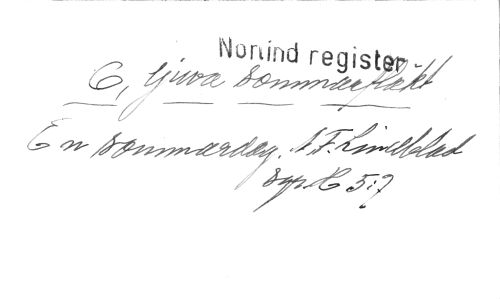 Nonind register
O, ljuva sommarfläkt
En sommardag. A F. Lindblad
Syr. H 5:7